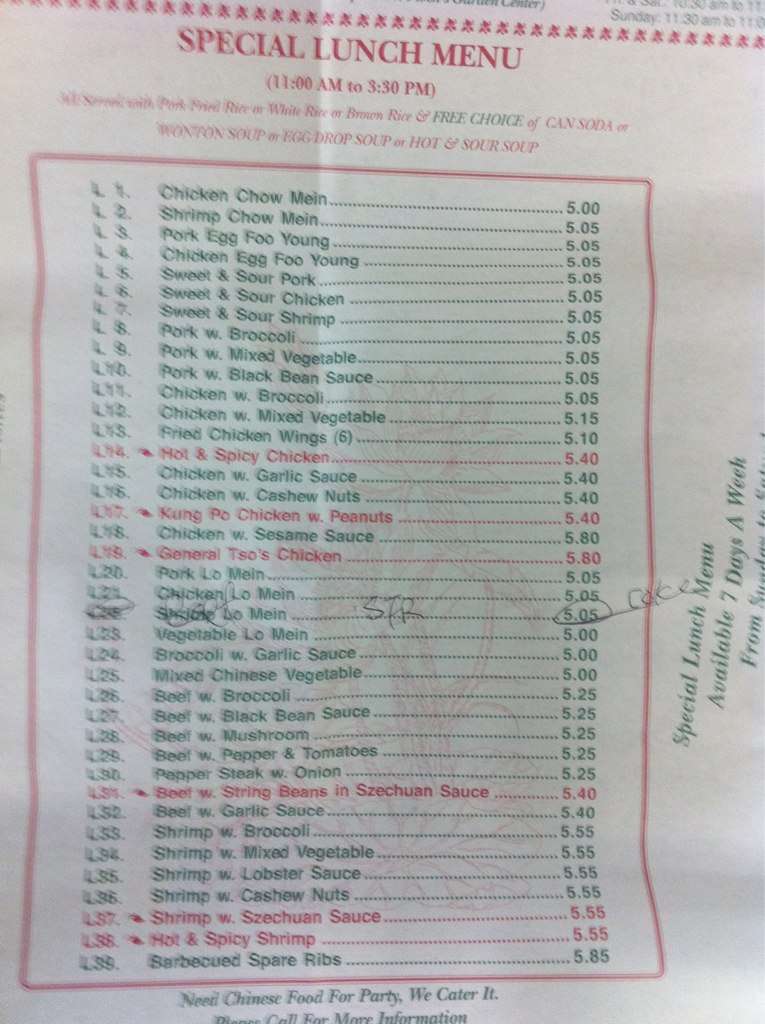 Garden Center)
Sunday: 11:30 am to 11:0
SPECIAL LUNCH MENU
(11:00 AM to 3:30 PM)
with Pork Fried Rice or White Rice or Brown Rice & FREE CHOICE of CAN SODA or
WONTON SOUP or EGG DROP SOUP or HOT & SOUR SOUP
L 1. Chicken Chow Mein 5.00
L 2. Shrimp Chow Mein 5.05
L 3. Pork Egg Foo Young 5.05
L 4. Chicken Egg Foo Young 5.05
L 5. Sweet & Sour Pork 5.05
L 6. Sweet & Sour Chicken 5.05
L 7. Sweet & Sour Shrimp 5.05
L 8. Pork w. Broccoli 5.05
L 9. Pork w. Mixed Vegetable 5.05
L10. Pork w. Black Bean Sauce 5.05
L11. Chicken w. Broccoli 5.05
L12. Chicken w. Mixed Vegetable 5.15
L13. Fried Chicken Wings (6) 5.10
L14. Hot & Spicy Chicken 5.40
L15. Chicken w. Garlic Sauce 5.40
L16. Chicken w. Cashew Nuts 5.40
L17. Kung Po Chicken w. Peanuts 5.40
L18. Chicken w. Sesame Sauce 5.80
L19. General Tso's Chicken 5.80
L20. Pork Lo Mein 5.05
L21. Chicken Lo Mein 5.05
Lo Mein 5.05
L23. Vegetable Lo Mein 5.00
L24. Broccoli w. Garlic Sauce 5.00
L25. Mixed Chinese Vegetable 5.00
L26. Beef w. Broccoli 5.25
L27. Beef w. Black Bean Sauce 5.25
L28. Beef w. Mushroom 5.25
L29. Beef w. Pepper & Tomatoes 5.25
L30. Pepper Steak w. Onion 5.25
L31. Beef w. String Beans in Szechuan Sauce 5.40
L32. Beef w. Garlic Sauce 5.40
L33. Shrimp w. Broccoli 5.55
L34. Shrimp w. Mixed Vegetable 5.55
L35. Shrimp w. Lobster Sauce 5.55
L36. Shrimp w. Cashew Nuts 5.55
L37. Shrimp w. Szechuan Sauce 5.55
L38. Hot & Spicy Shrimp 5.55
L39. Barbecued Spare Ribs 5.85
Need Chinese Food For Party, We Cater It.
Please Call For More Information
Special Lunch Menu
Available 7 Days A Week
From Sunday to